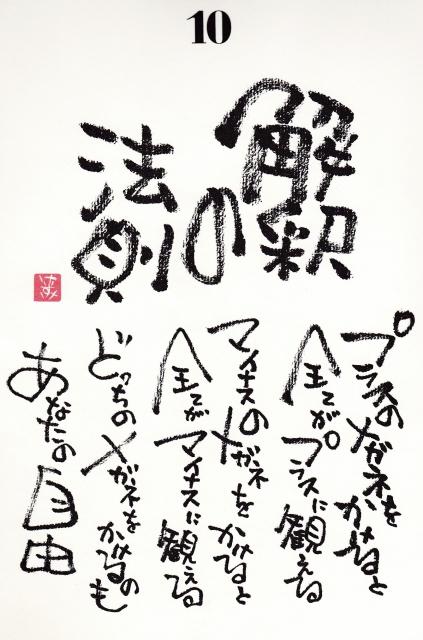 10
解釈
の
法則
プラスのメガネをかけると
全てがプラスに観える
マイナスのメガネをかけると
全てがマイナスに観える
どっちのメガネをかけるのも
あなたの自由